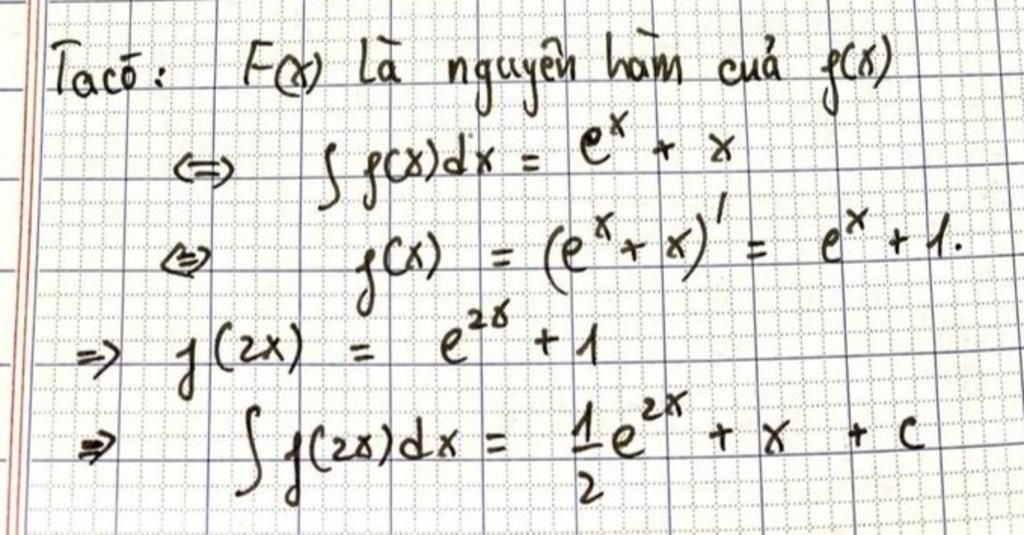 Ta có: F(x) là nguyên hàm của f(x)
<=> ∫ f(x)dx = eˣ + x
<=> f(x) = (eˣ + x)' = eˣ + 1.
=> f(2x) = e²ˣ + 1
=> ∫ f(2x)dx = 1/2 e²ˣ + x + C